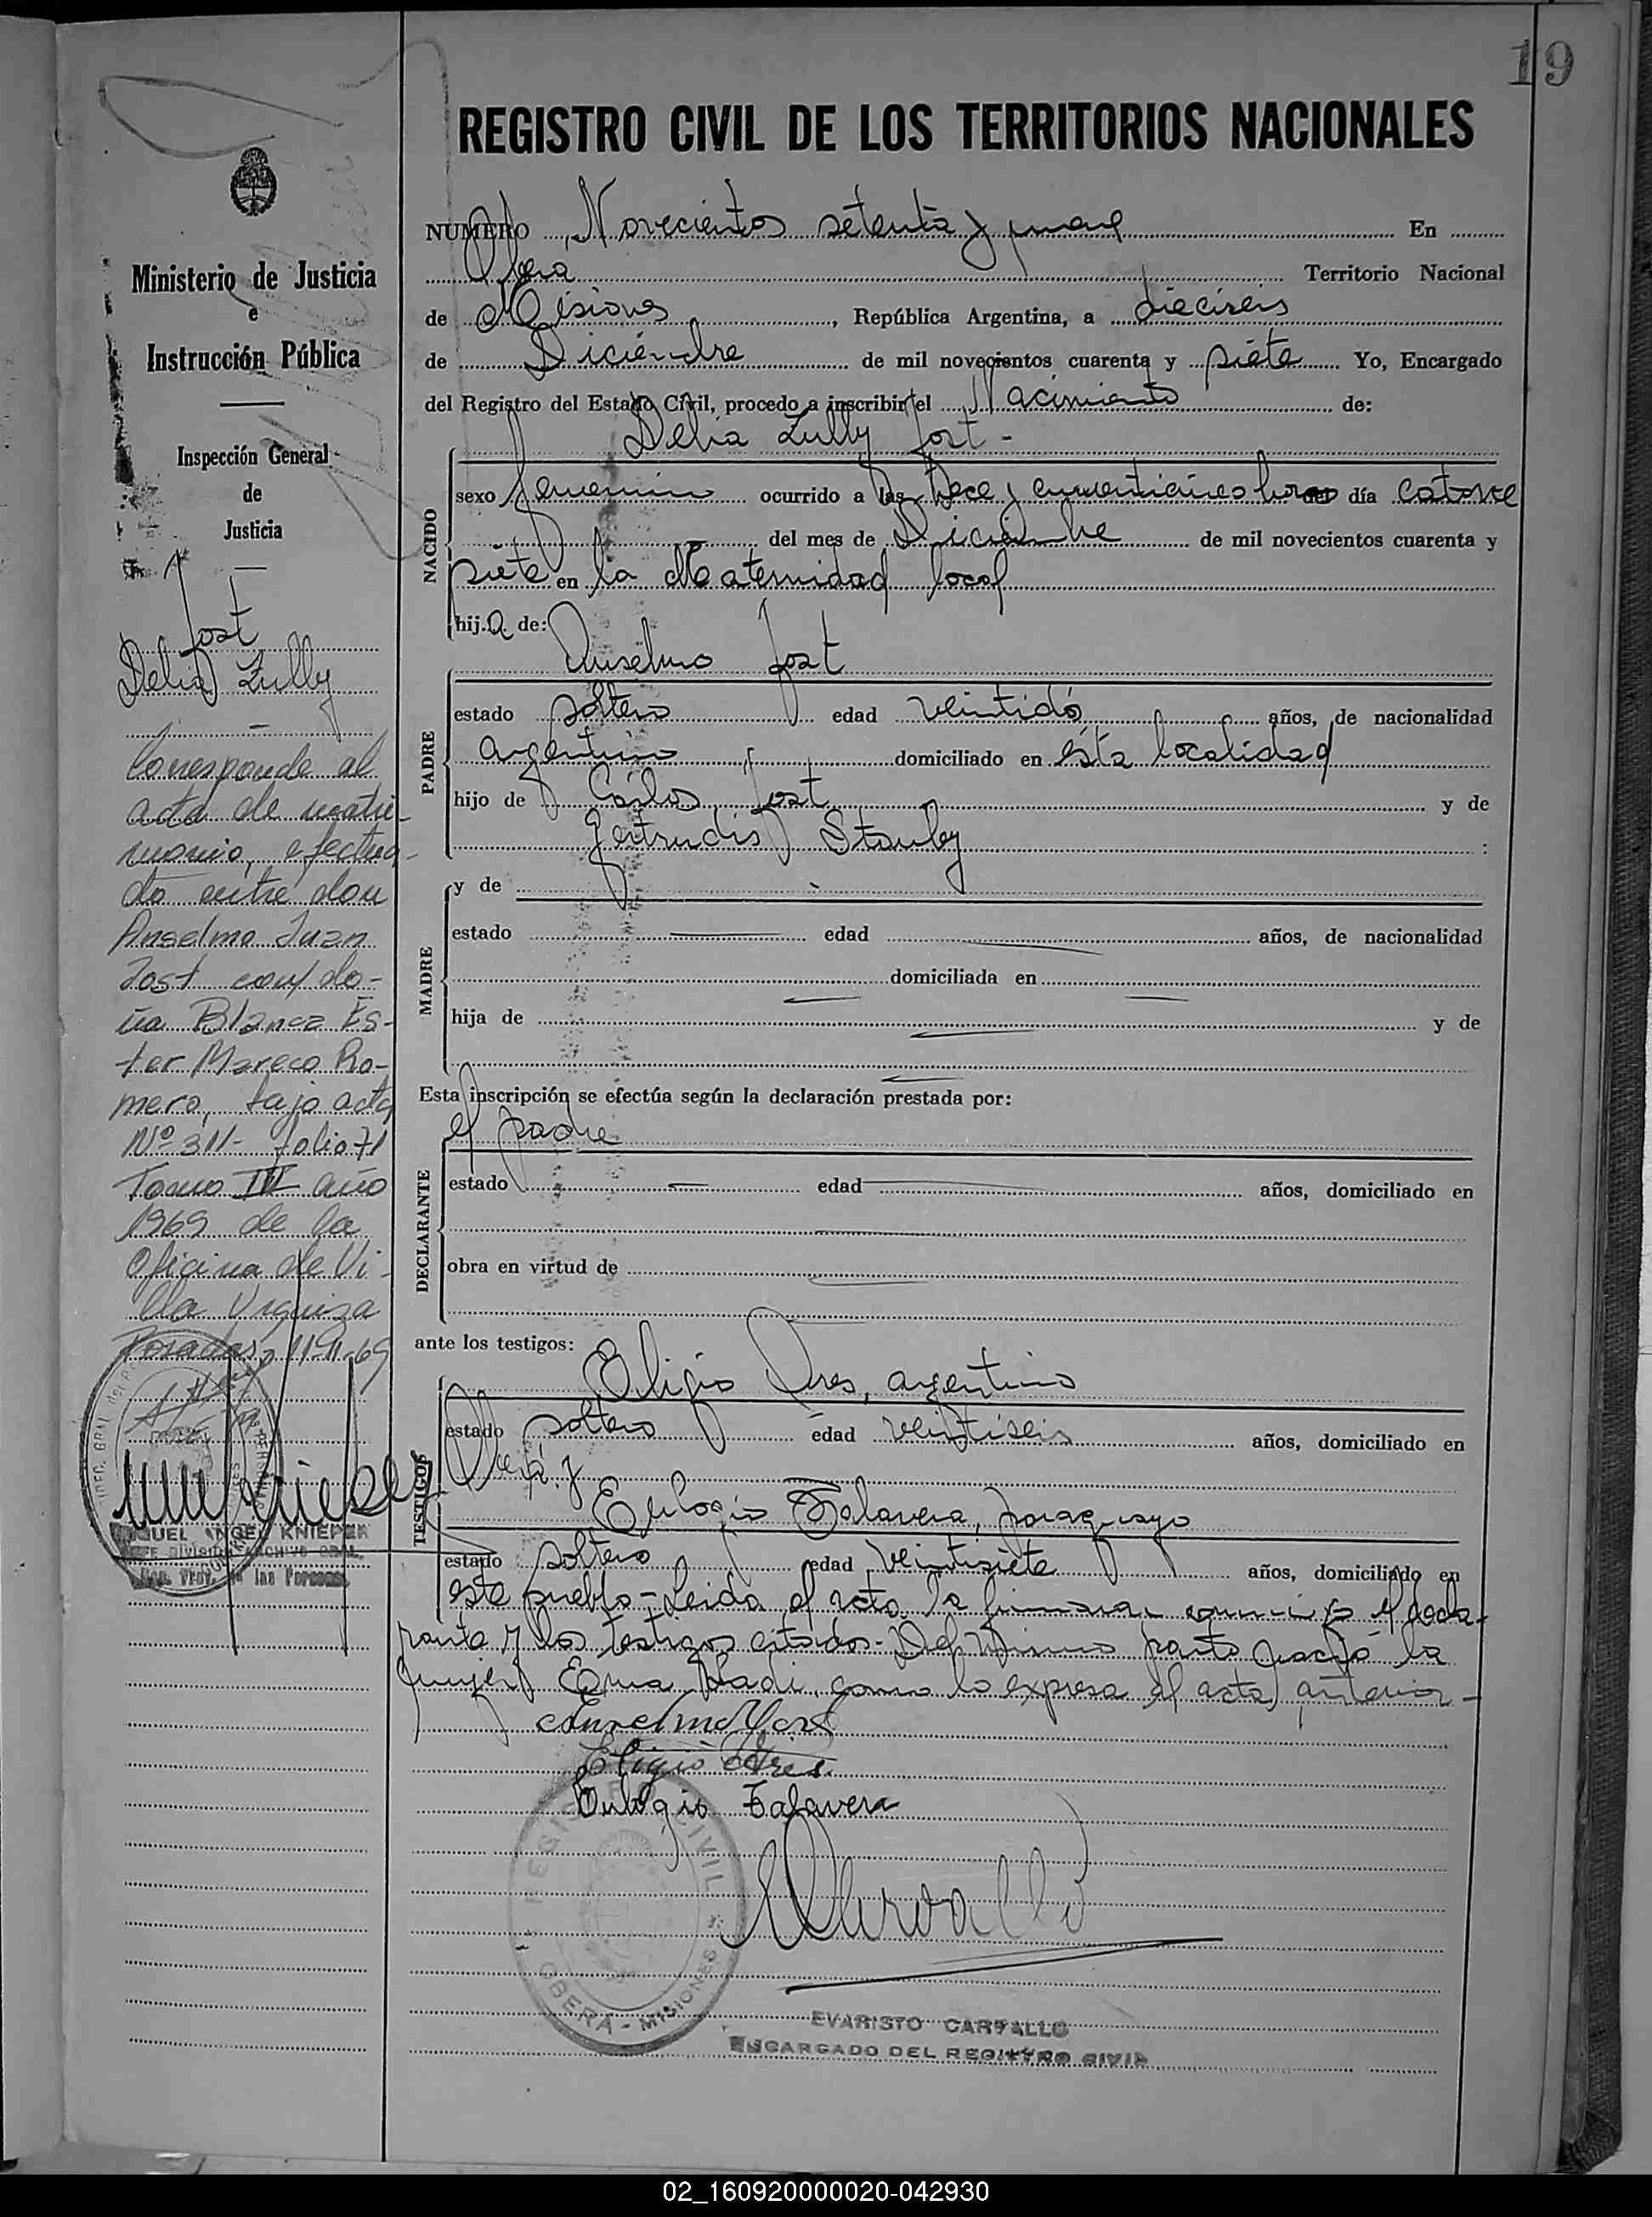 19
REGISTRO CIVIL DE LOS TERRITORIOS NACIONALES
Ministerio de Justicia
e
Instrucción Pública
Inspección General
de
Justicia
Jost
Delia Zully
Corresponde al
acta de matri-
monio, efectua-
do entre don
Anselmo Juan
Jost con do-
ña Blanca Es-
ter Mareco Ro-
mero, bajo acta
Nº 311- folio 71
Tomo III año
1969 de la
Oficina de Vi-
lla Urquiza
Posadas, 11-11-69
MIGUEL ANGEL KNIEPER
JEFE División ARCHIVO GRAL.
Prov. de las Personas
NUMERO Novecientos setenta y nueve En
Oberá Territorio Nacional
de Misiones, República Argentina, a dieciseis
de Diciembre de mil novecientos cuarenta y siete Yo, Encargado
del Registro del Estado Civil, procedo a inscribir el Nacimiento de:
Delia Zully Jost -
NACIDO
sexo femenino ocurrido a las trece y cuarenticinco horas del día catorce
del mes de Diciembre de mil novecientos cuarenta y
siete en la Maternidad local
hija de:
PADRE
Anselmo Jost
estado soltero edad veintidó años, de nacionalidad
argentino domiciliado en ésta localidad
hijo de Cárlos Jost y de
Gertrudis Stanley :
MADRE
y de
estado edad años, de nacionalidad
domiciliada en
hija de y de
Esta inscripción se efectúa según la declaración prestada por:
DECLARANTE
el padre
estado edad años, domiciliado en
obra en virtud de
ante los testigos:
TESTIGOS
Eligio Ires, argentino
estado soltero edad veintiseis años, domiciliado en
Oberá y
Eulogio Talavera, paraguayo
estado soltero edad veintisiete años, domiciliado en
este pueblo - Leida el acta la firmaran conmigo el decla-
rante y los testigos citados - Del mismo parto nació la
mujer Ema Gladi, como lo expresa el acta anterior -
Anselmo Jost
Eligio Ires
Eulogio Talavera
REGISTRO CIVIL
OBERÁ - MISIONES
EVARISTO CARVALLO
ENCARGADO DEL REGISTRO CIVIL
02_160920000020-042930